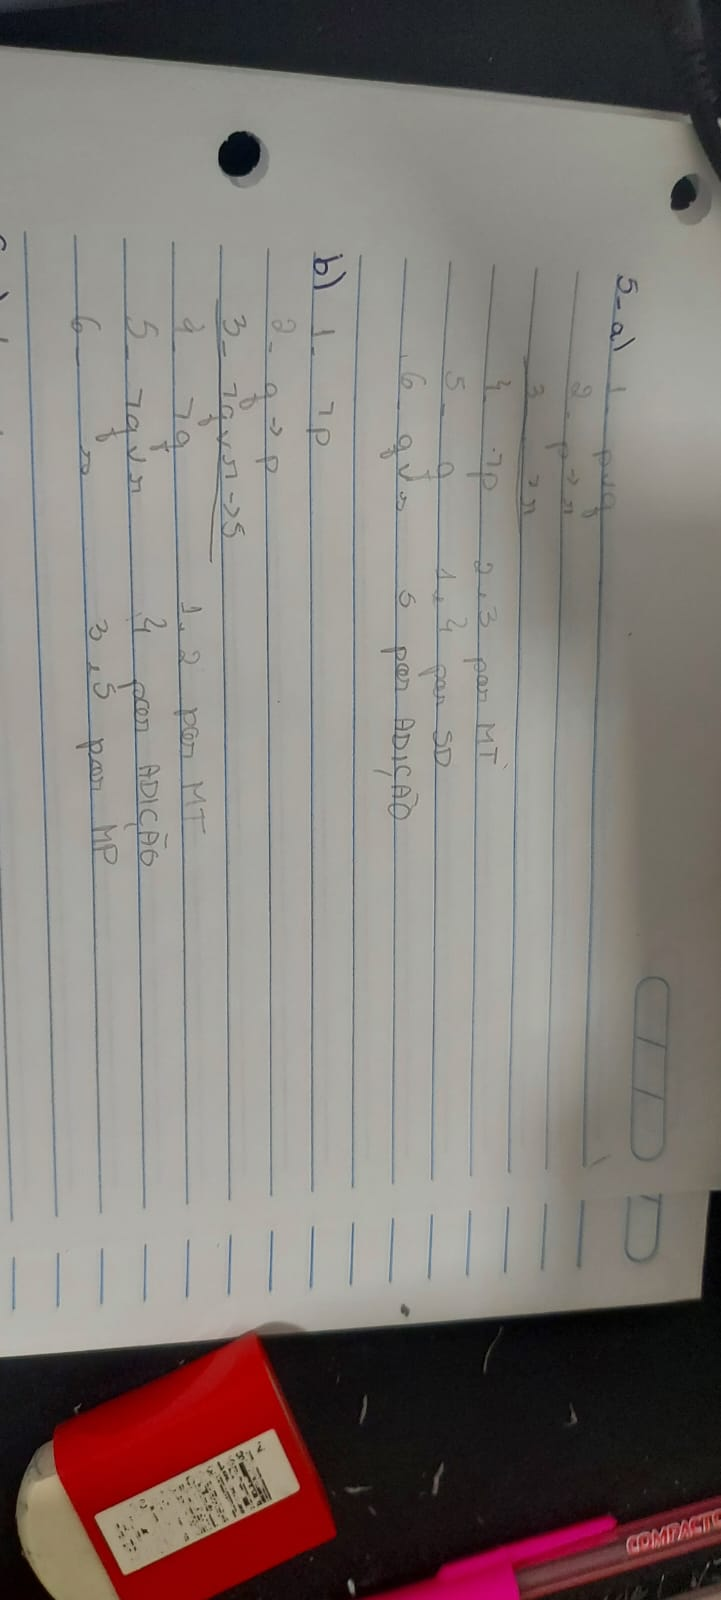 5-a) 1- p∨q
2- p→r
3- ¬r
4- ¬p 2,3 por MT
5- q 1,4 por SD
6- q∨r 5 por ADIÇÃO
b) 1- ¬p
2- q→p
3- ¬q∨r→s
4- ¬q 1,2 por MT
5- ¬q∨r 4 por ADIÇÃO
6- s 3,5 por MP
COMPACTO